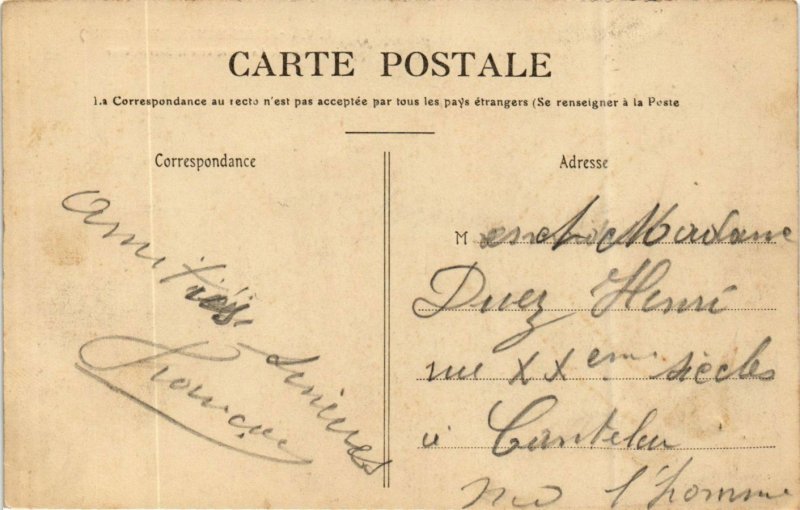 CARTE POSTALE
La Correspondance au recto n'est pas acceptée par tous les pays étrangers (Se renseigner à la Poste
Correspondance
Adresse
amitiés sincères
M et Madame
Duez Henri
rue XXeme siècles
à Canteleu
l'homme